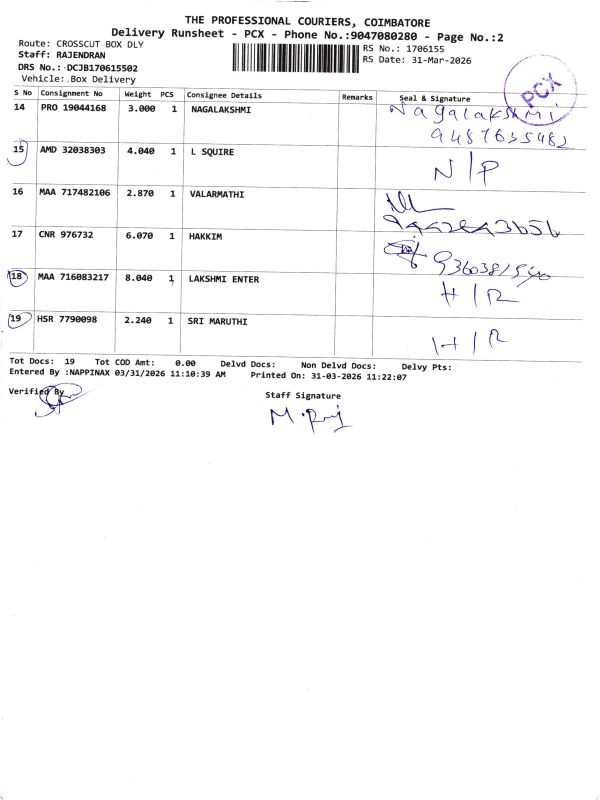 THE PROFESSIONAL COURIERS, COIMBATORE
Delivery Runsheet - PCX - Phone No.:9047080280 - Page No.:2
Route: CROSSCUT BOX DLY
Staff: RAJENDRAN
DRS No.: DCJB170615502
Vehicle: Box Delivery
RS No.: 1706155
RS Date: 31-Mar-2026
PCX
S No Consignment No Weight PCS Consignee Details Remarks Seal & Signature
14 PRO 19044168 3.000 1 NAGALAKSHMI Nagalakshmi
15 AMD 32038303 4.040 1 L SQUIRE N/P
16 MAA 717482106 2.870 1 VALARMATHI
17 CNR 976732 6.070 1 HAKKIM
18 MAA 716083217 8.040 1 LAKSHMI ENTER H/R
19 HSR 7790098 2.240 1 SRI MARUTHI H/R
Tot Docs: 19 Tot COD Amt: 0.00 Delvd Docs: Non Delvd Docs: Delvy Pts:
Entered By :NAPPINAX 03/31/2026 11:10:39 AM Printed On: 31-03-2026 11:22:07
Verified By
Staff Signature